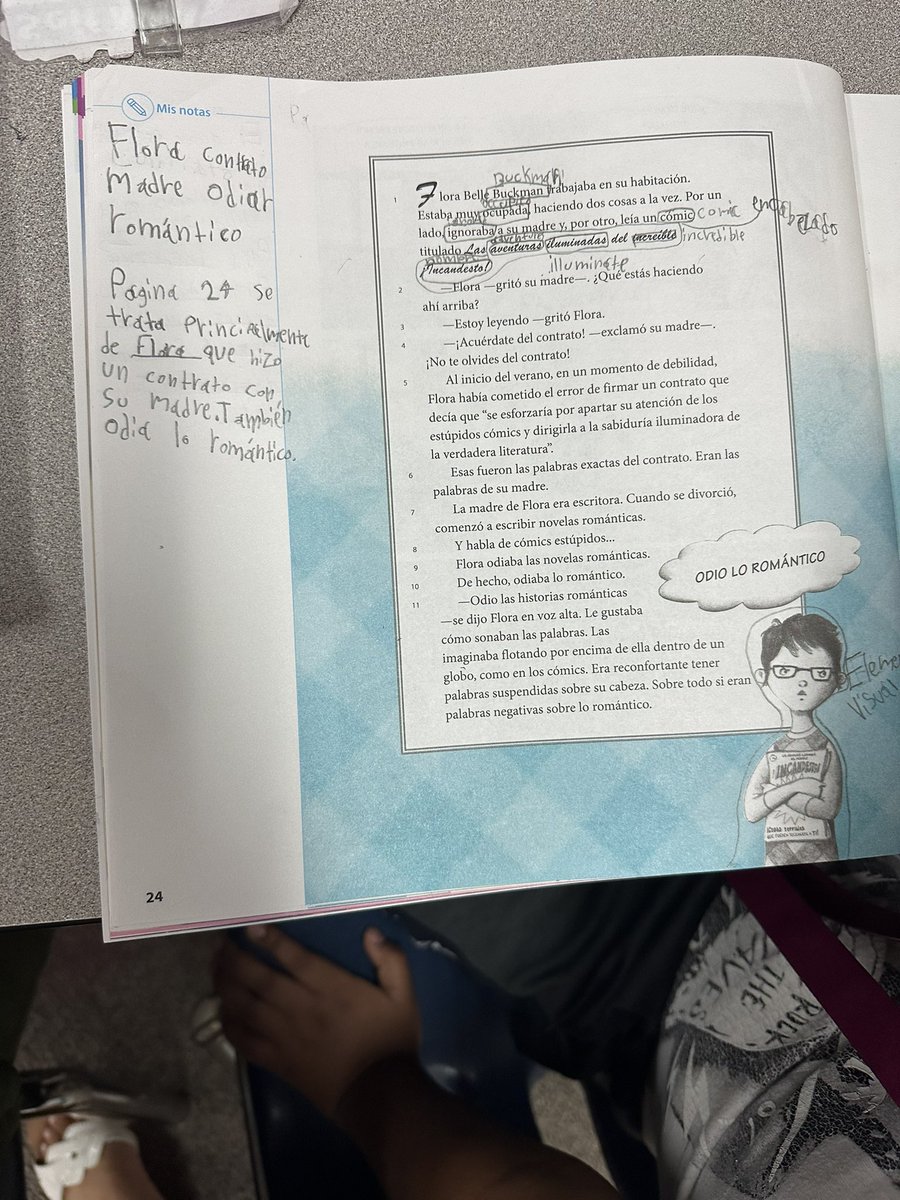 Mis notas
Flora contrato
Madre odiar
romántico
Pagina 24 se
trata principalmente
de Flora que hizo
un contrato con
su madre. También
odia lo romántico.
24
Buckman
1 Flora Belle Buckman trabajaba en su habitación.
Estaba muy ocupada, haciendo dos cosas a la vez. Por un
lado, ignoraba a su madre y, por otro, leía un cómic comic
titulado Las aventuras iluminadas del increíble incresible
¡Incandesto!
illuminate
2 —Flora —gritó su madre—. ¿Qué estás haciendo
ahí arriba?
3 —Estoy leyendo —gritó Flora.
4 —¡Acuérdate del contrato! —exclamó su madre—.
¡No te olvides del contrato!
5 Al inicio del verano, en un momento de debilidad,
Flora había cometido el error de firmar un contrato que
decía que “se esforzaría por apartar su atención de los
estúpidos cómics y dirigirla a la sabiduría iluminadora de
la verdadera literatura”.
6 Esas fueron las palabras exactas del contrato. Eran las
palabras de su madre.
7 La madre de Flora era escritora. Cuando se divorció,
comenzó a escribir novelas románticas.
8 Y habla de cómics estúpidos...
9 Flora odiaba las novelas románticas.
10 De hecho, odiaba lo romántico.
11 —Odio las historias románticas
—se dijo Flora en voz alta. Le gustaba
cómo sonaban las palabras. Las
imaginaba flotando por encima de ella dentro de un
globo, como en los cómics. Era reconfortante tener
palabras suspendidas sobre su cabeza. Sobre todo si eran
palabras negativas sobre lo romántico.
ODIO LO ROMÁNTICO
Visual
¡INCANDESTO!
THE
ROCK